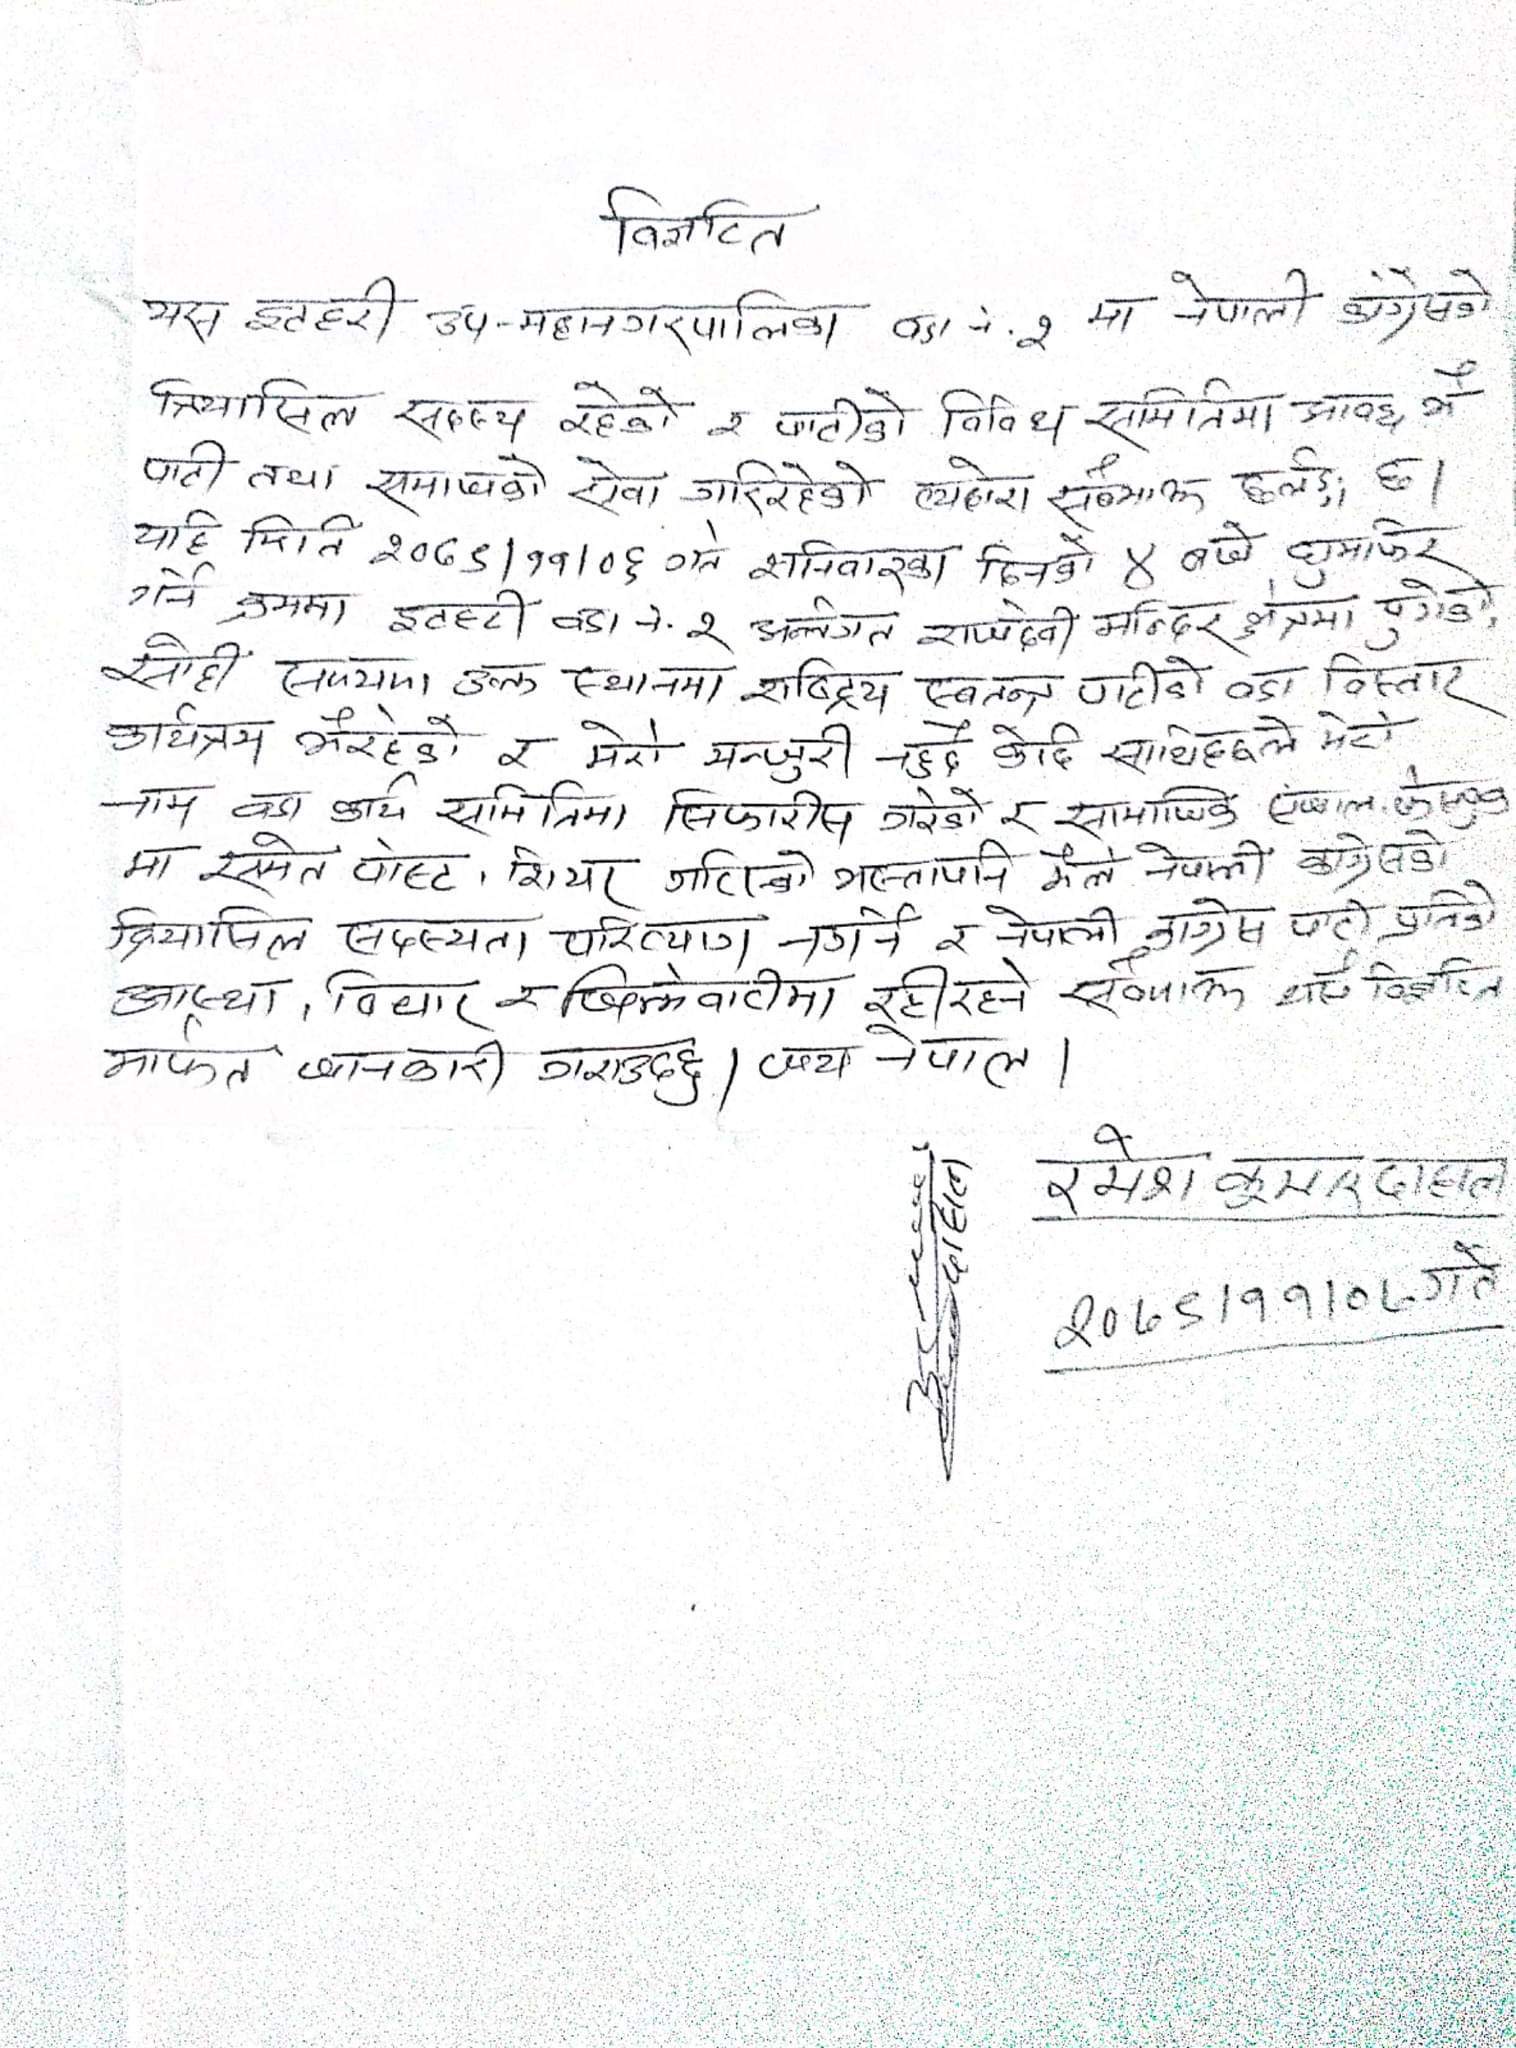 विज्ञप्ति
यस इटहरी उप-महानगरपालिका वडा नं. २ मा नेपाली कांग्रेसको
क्रियासिल सदस्य रहेको र पार्टीको विविध समितिमा आवद्ध भै
पार्टी तथा समाजको सेवा गरिरहेको व्यहोरा सर्वमाफ छ।
यहि मिति २०७९/११/०६ गते शनिवारका दिनको ४ बजे घुमफिर
गर्ने क्रममा इटहरी वडा नं. २ अर्न्तगत राजदेवी मन्दिर क्षेत्रमा पुगेको,
सोही समयमा उक्त स्थानमा राष्ट्रिय स्वतन्त्र पार्टीको वडा विस्तार
कार्यक्रम भैरहेको र मेरो मन्जुरी नहुदै केहि साथिहरुले मेरो
नाम वडा कार्य समितिमा सिफारीस गरेको र सामाजिक संजाल फेसबुक
मा समेत पोस्ट, शियर गरिएको भएतापनि मैले नेपाली कांग्रेसको
क्रियासिल सदस्यता परित्याग नगर्ने र नेपाली कांग्रेस पार्टी प्रतिको
आस्था, विचार र जिम्मेवारीमा रहीरहने यसै विज्ञप्ति
मार्फत जानकारी गराउदछु। जय नेपाल।
रमेश कुमार दाहाल
२०७९/११/०७ गते